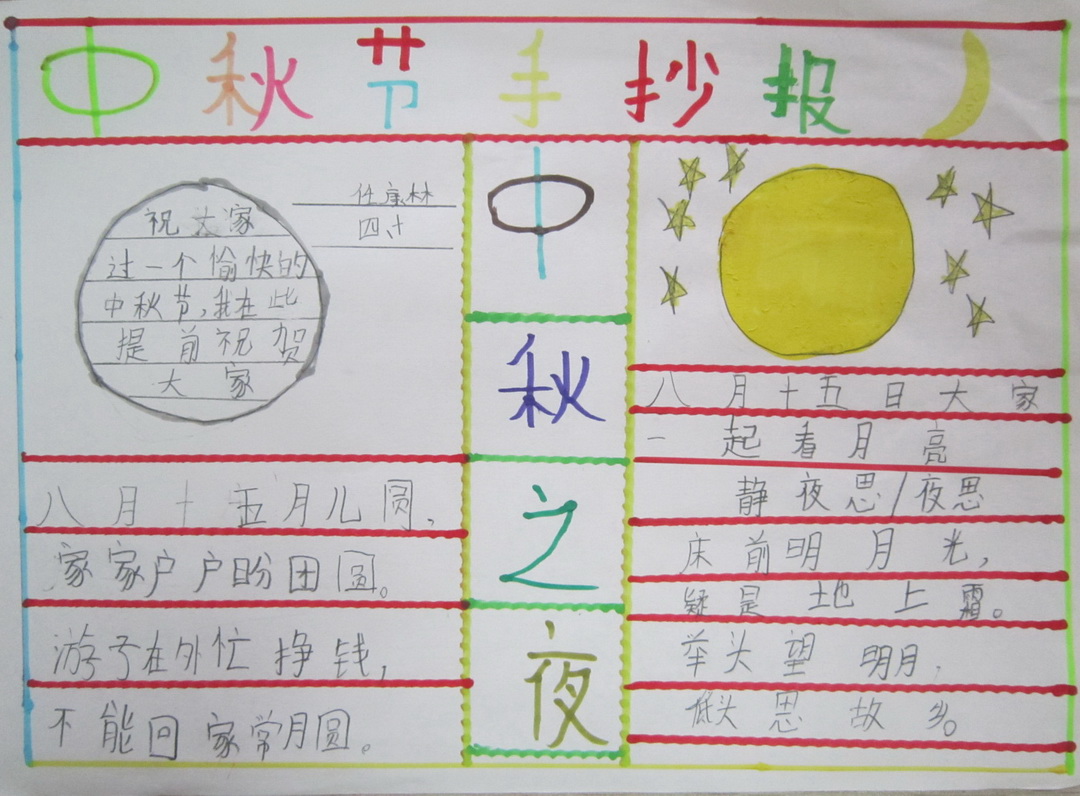 中秋节手抄报
祝大家
过一个愉快的
中秋节,我在此
提前祝贺
大家
任康林
四、计
八月十五月儿圆,
家家户户盼团圆。
游子在外忙挣钱,
不能回家常月圆。
中
秋
之
夜
八月十五日大家
一起看月亮
静夜思/夜思
床前明月光,
疑是地上霜。
举头望明月,
低头思故乡。